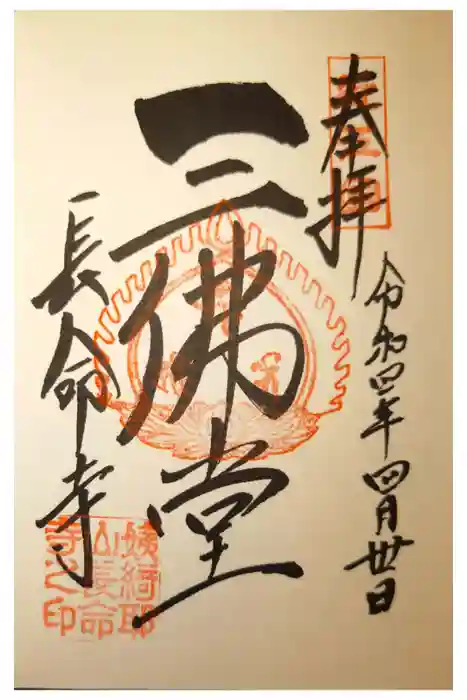 奉拝
令和四年四月卅日
三佛堂
長命寺
姨綺耶
山長命
寺之印